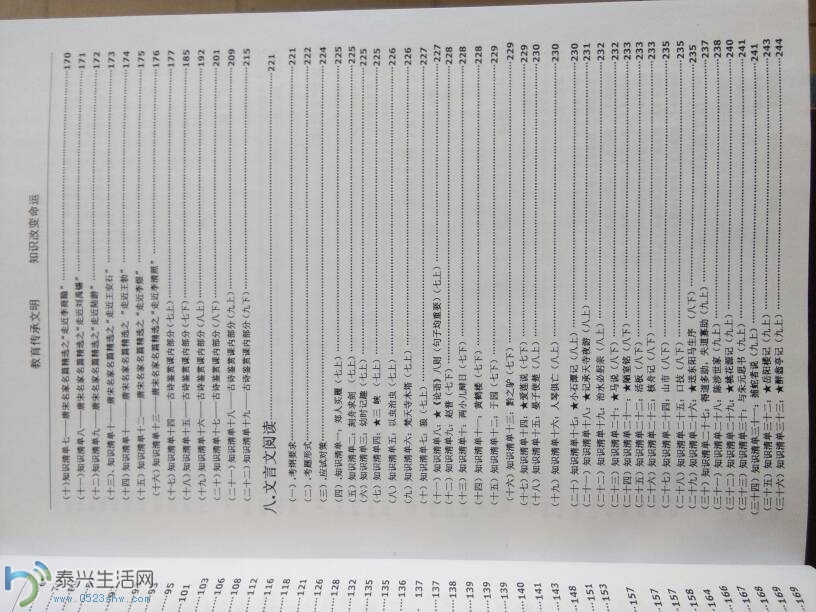 教育传承文明 知识改变命运
(十)知识清单七——唐宋名家名篇精选之“走近李商隐”……170
(十一)知识清单八——唐宋名家名篇精选之“走近刘禹锡”……171
(十二)知识清单九——唐宋名家名篇精选之“走近陆游”……172
(十三)、知识清单十——唐宋名家名篇精选之“走近王安石”……173
(十四)知识清单十一——唐宋名家名篇精选之“走近王勃”……174
(十五)知识清单十二——唐宋名家名篇精选之“走近李煜”……175
(十六)知识清单十三——唐宋名家名篇精选之“走近李清照”……176
(十七)知识清单十四 古诗鉴赏课内部分(七上)……177
(十八)知识清单十五 古诗鉴赏课内部分(七下)……185
(十九)知识清单十六 古诗鉴赏课内部分(八上)……192
(二十)知识清单十七 古诗鉴赏课内部分(八下)……201
(二十一)知识清单十八 古诗鉴赏课内部分(九上)……209
(二十二)知识清单十九 古诗鉴赏课内部分(九下)……215
八.文言文阅读……221
(一).考纲要求……221
(二).考题形式……222
(三).应试对策……224
(四).知识清单一,郑人买履(七上)……225
(五)知识清单二;刻舟求剑(七上)……225
(六)知识清单三;幼时记趣(七上)……225
(七)知识清单四;★三峡(七上)……225
(八)知识清单五;以虫治虫(七上)……226
(九)知识清单六;梵天寺木塔(七上)……226
(十)知识清单七;狼(七上)……227
(十一)知识清单八;★《论语》八则(句子均重要)(七上)……227
(十二)知识清单九,赵普(七下)……228
(十三)知识清单十;两小儿辩日(七下)……228
(十四)知识清单十一,黄鹤楼(七下)……228
(十五)知识清单十二;于园(七下)……229
(十六)知识清单十三,黔之驴(七下)……229
(十七)知识清单十四;★爱莲说(七下)……229
(十八)知识清单十五;晏子使楚(八上)……230
(十九)知识清单十六,人琴俱亡(八上)……230
(二十)知识清单十七;★小石潭记(八上)……230
(二十一)知识清单十八;★记承天寺夜游(八上)……231
(二十二)知识清单十九,治水必躬亲(八上)……232
(二十三)知识清单二十;★马说(八下)……232
(二十四)知识清单二十一;★陋室铭(八下)……233
(二十五)知识清单二十二;活板(八下)……233
(二十六)知识清单二十三,核舟记(八下)……233
(二十七)知识清单二十四;山市(八下)……235
(二十八)知识清单二十五;口技(八下)……235
(二十九)知识清单二十六;★送东阳马生序(八下)……235
(三十)知识清单二十七;得道多助,失道寡助(九上)……237
(三十一)知识清单二十八,陈涉世家(九上)……238
(三十二)知识清单二十九;★桃花源记(九上)……240
(三十三)知识清单三十;与朱元思书(九上)……241
(三十四)知识清单三十一,捕蛇者说(九上)……241
(三十五)知识清单三十二;★岳阳楼记(九上)……243
(三十六)知识清单三十三;★醉翁亭记(九上)……244
93
95
101
103
106
108
112
116
118
121
126
128
132
135
135
136
137
137
138
139
139
140
141
143
148
151
153
157
157
158
164
166
168
169
169
泰兴生活网
www.0523shw.com